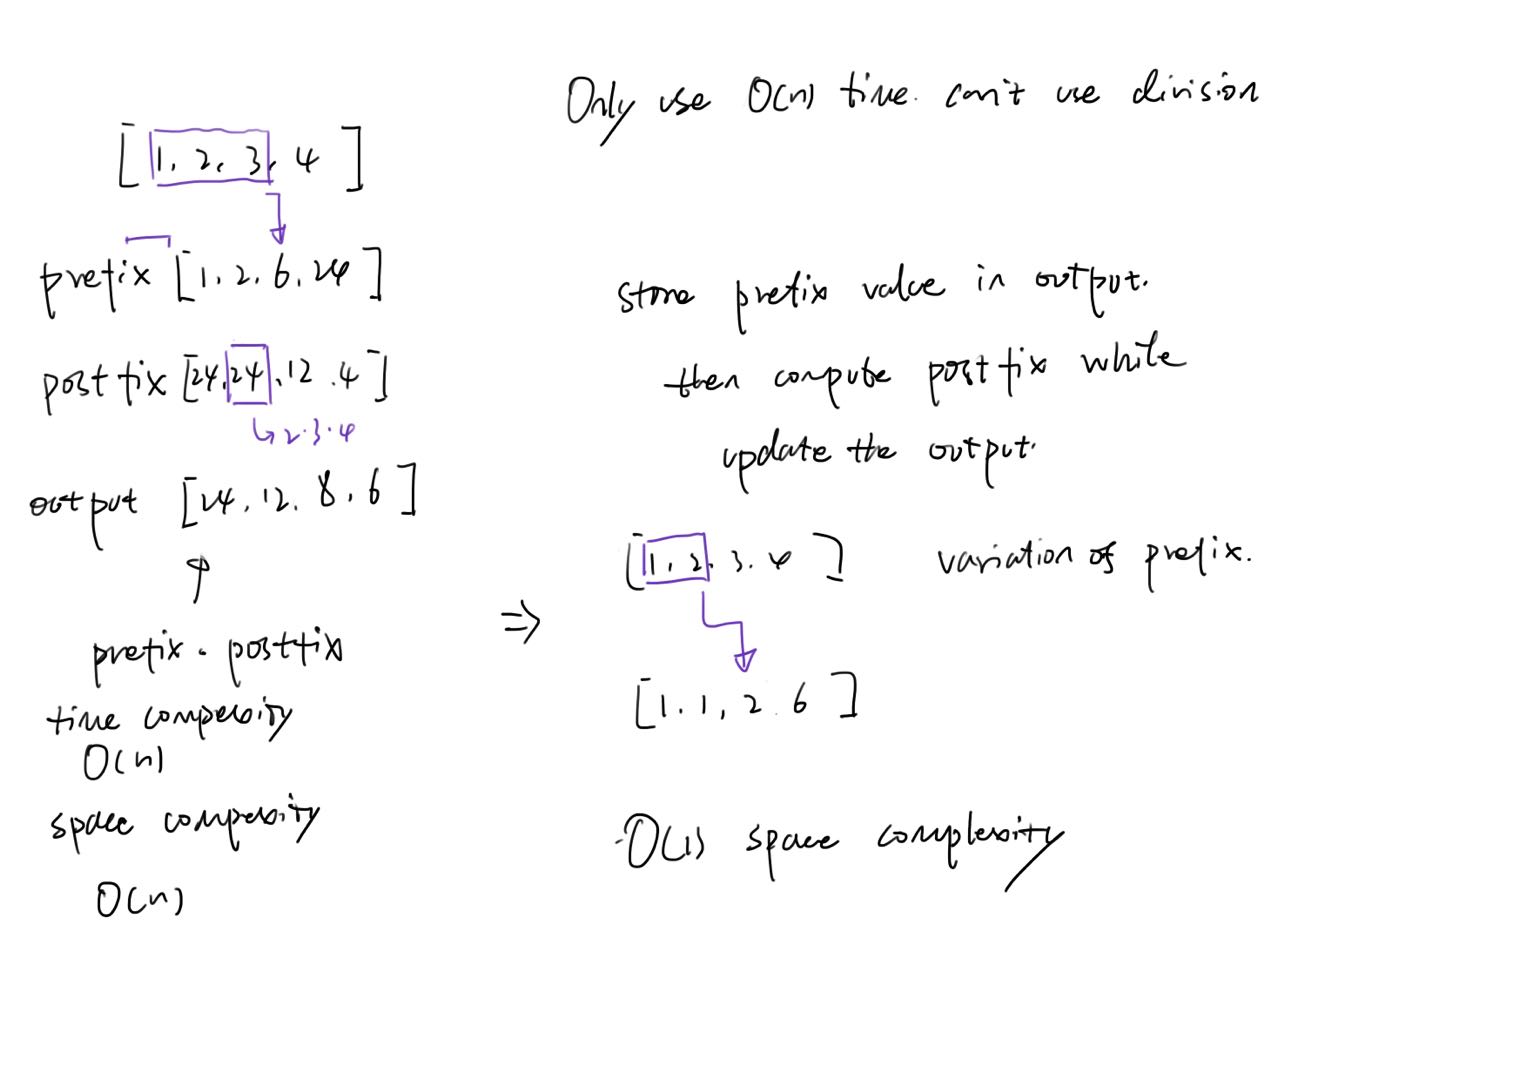 Only use O(n) time. can't use division
[1, 2, 3, 4]
prefix [1, 2, 6, 24]
postfix [24, 24, 12, 4]
↳ 2·3·4
output [24, 12, 8, 6]
prefix · postfix
time compexity
O(n)
space compexity
O(n)
store prefix value in output.
then compute postfix while
update the output.
[1, 2, 3, 4] variation of prefix.
⇒
[1, 1, 2, 6]
O(1) space complexity